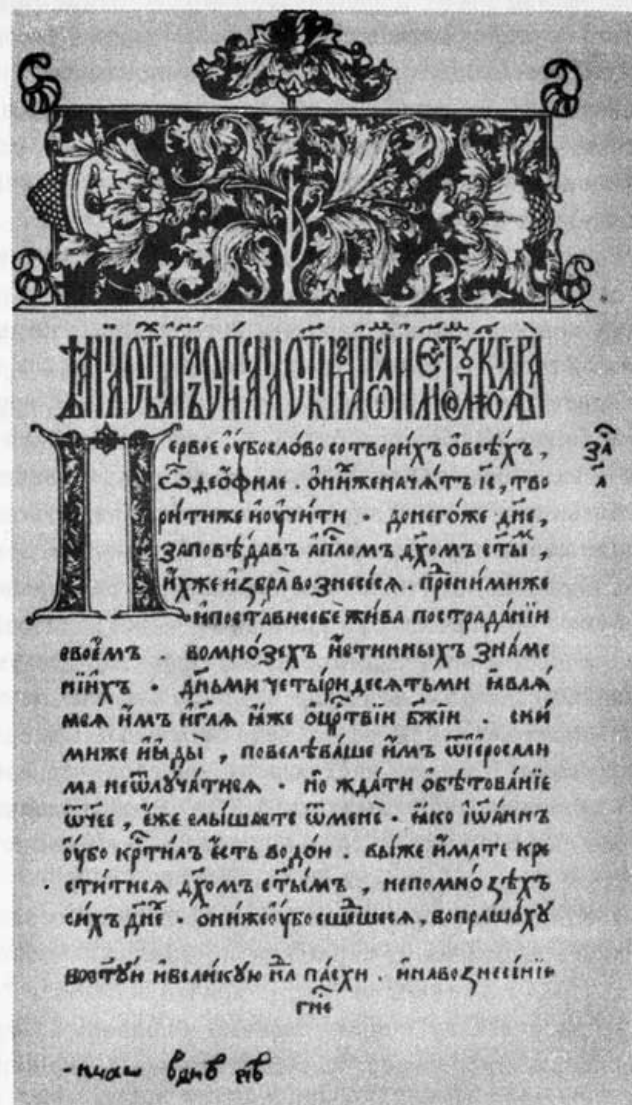 Первое ᲂу҆́бо сло́во сотвори́хъ ѻ҆всѣ́хъ,
ѽ҆ деѻ҆́филе. ѻ҆ни́хже начѧ́тъ і҆с҃, тво
ри́тиже иᲂу҆чи́ти · донего́же дн҃е,
заповѣ́давъ а҆пⷭ҇ломъ дх҃омъ ст҃ы́ⷨ,
и҆́хже и҆збра̀ вознесе́сѧ. преⷣни́миже
и҆поста́ви себѐ жи́ва пострада́нїи
свое́мъ. вомно́зехъ и҆́стинныхъ зна́ме
нїихъ · дн҃ьми четы́ридесѧтьми ꙗ҆влѧ́
ѧсѧ и҆̀мъ и҆гл҃ѧ ꙗ҆́же ѻ҆црⷭ҇твїи бж҃їи. сни́
миже и҆ꙗды̀, повелѣва́ше и҆̀мъ ѿі҆еросали
ма неѿлꙋча́тисѧ · но жда́ти ѻ҆бѣтова́нїе
ѿч҃ее, е҆́же слы́шасте ѿменѐ · ꙗ҆́ко і҆ѡа́ннъ
ᲂу҆́бо крⷭ҇ти́лъ є҆́сть водо́ю. вы́же и҆́мате кре
сти́тисѧ дх҃омъ ст҃ы́мъ, непомно́ѕѣхъ
си́хъ дн҃е · ѻ҆ни́же ᲂу҆́бо сше́дшесѧ, вопраша́хꙋ
восⷮꙋ́ю и҆вели́кꙋю нⷣлю па́схи. и҆навоꙁнесе́нїе
гн҃е
заⷱ҇
а҃